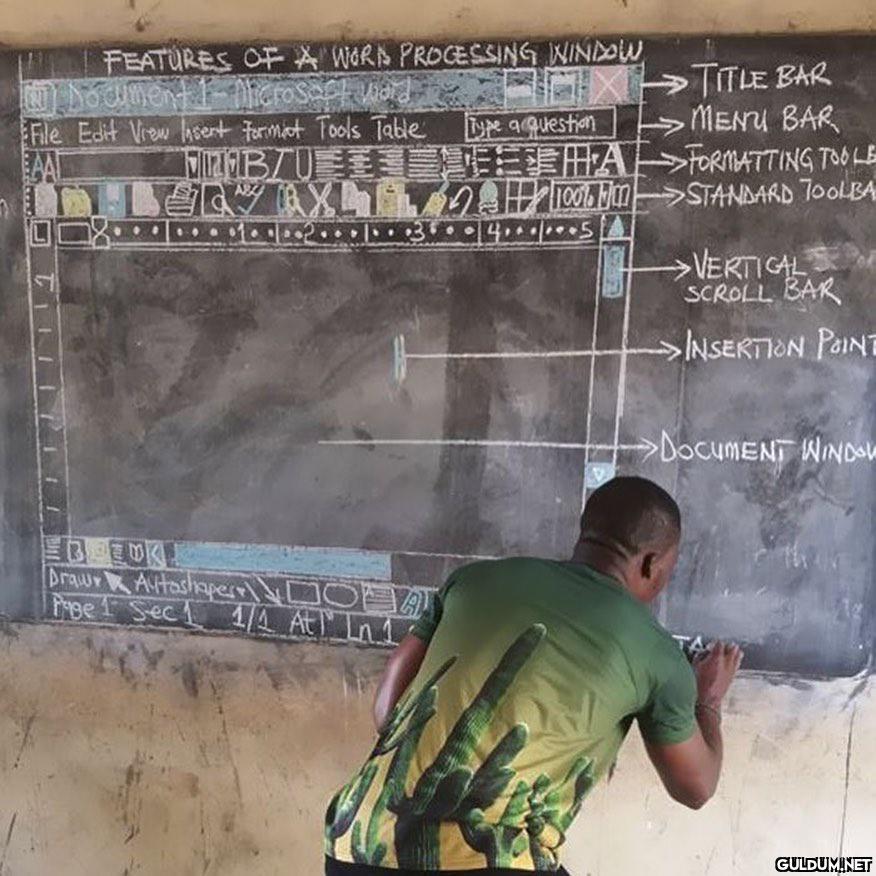 FEATURES OF A WORD PROCESSING WINDOW
Document 1 - Microsoft Word
TITLE BAR
File Edit View Insert Format Tools Table
Type a question
MENU BAR
AA 12 B I U A
FORMATTING TOOLB
ABC 100%
STANDARD TOOLBA
L 1 2 3 4 5
VERTICAL
SCROLL BAR
INSERTION POINT
DOCUMENT WINDOW
Draw Autoshapes A
Page 1 Sec 1 1/1 At 1" Ln 1
TA
GULDUM.NET